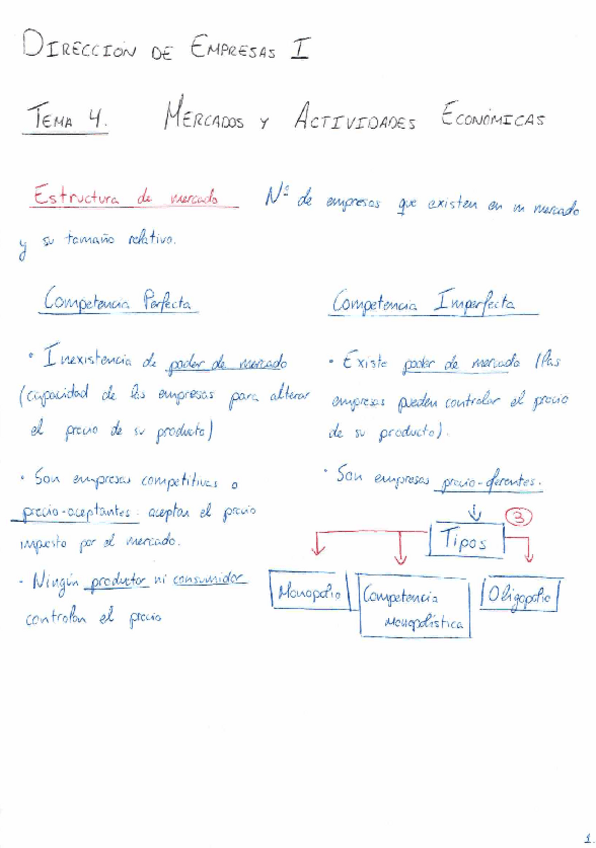 DIRECCIÓN DE EMPRESAS I
TEMA 4. MERCADOS Y ACTIVIDADES ECONÓMICAS
Estructura de mercado Nº de empresas que existen en un mercado
y su tamaño relativo.
Competencia Perfecta
• Inexistencia de poder de mercado
(capacidad de las empresas para alterar
el precio de su producto)
• Son empresas competitivas o
precio-aceptantes. aceptan el precio
impuesto por el mercado.
• Ningún productor ni consumidor
controlan el precio
Competencia Imperfecta
• Existe poder de mercado (las
empresas pueden controlar el precio
de su producto).
• Son empresas precio-oferentes.
Tipos 3
Monopolio
Competencia
Monopolística
Oligopolio
1.